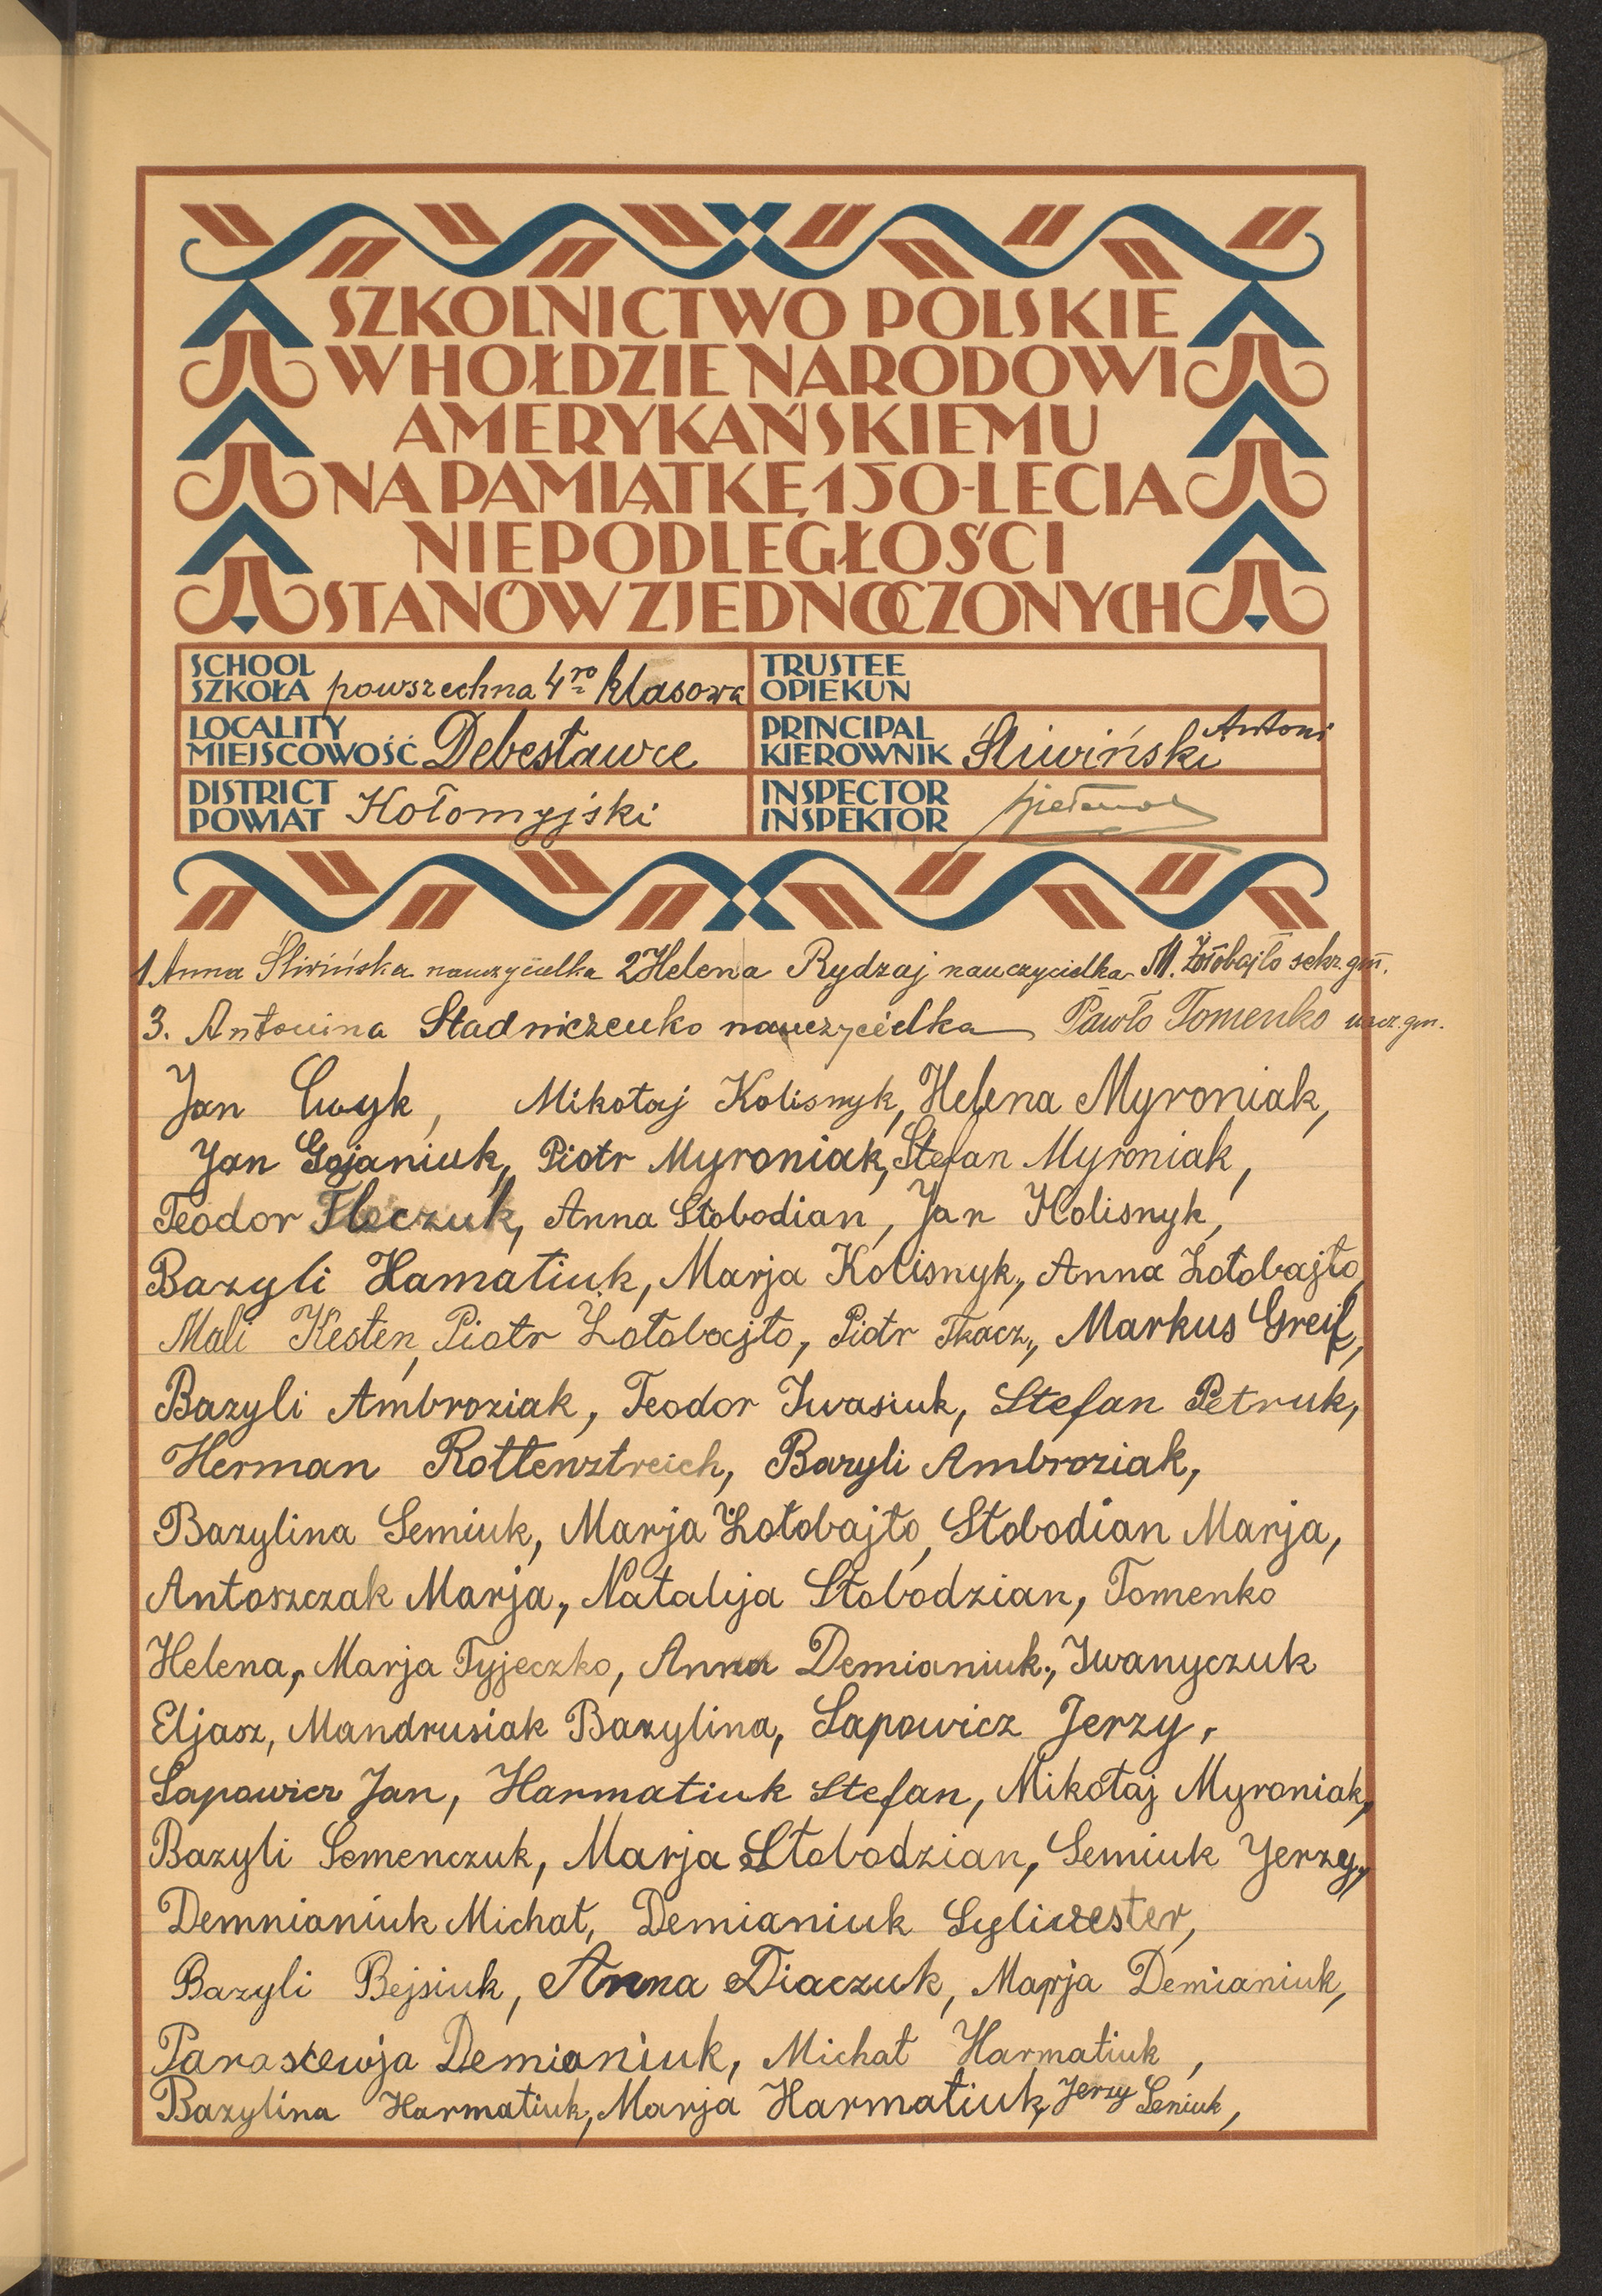 SZKOLNICTWO POLSKIE
W HOŁDZIE NARODOWI
AMERYKAŃSKIEMU
NA PAMIĄTKĘ 150-LECIA
NIEPODLEGŁOŚCI
STANÓW ZJEDNOCZONYCH
SCHOOL
SZKOŁA powszechna 4ro klasowa
TRUSTEE
OPIEKUN
LOCALITY
MIEJSCOWOŚĆ Debesławce
PRINCIPAL
KIEROWNIK Śliwiński Antoni
DISTRICT
POWIAT Kołomyjski
INSPECTOR
INSPEKTOR
1. Anna Śliwińska nauczycielka 2 Helena Rydzaj nauczycielka M. Żołobajło sekr. gm.
3. Antonina Stadniczenko nauczycielka Pawło Tomenko nacz. gm.
Jan Cwyk, Mikołaj Kolisnyk, Helena Myroniak,
Jan Gojaniuk, Piotr Myroniak, Stefan Myroniak,
Teodor Anna Słobodian, Jan Kolisnyk,
Bazyli Hamatiuk, Marja Kolisnyk, Anna Żołobajło,
Mali Kesten, Piotr Żołobajło, Piotr Tkacz, Markus Greif,
Bazyli Ambroziak, Teodor Iwasiuk, Stefan Petruk,
Herman Rottensztreich, Bazyli Ambroziak,
Bazylina Semiuk, Marja Żołobajło, Słobodian Marja,
Antoszczak Marja, Natalija Słobodzian, Tomenko
Helena, Marja Tyjeczko, Anna Demianiuk, Iwanyczuk
Eljasz, Mandrusiak Bazylina, Sapowicz Jerzy,
Sapowicz Jan, Harmatiuk Stefan, Mikołaj Myroniak,
Bazyli Semenczuk, Marja Słobodzian, Semiuk Jerzy,
Demnianiuk Michał, Demianiuk Sylwester,
Bazyli Bejsiuk, Anna Diaczuk, Marja Demianiuk,
Paraskewja Demianiuk, Michał Harmatiuk,
Bazylina Harmatiuk, Marja Harmatiuk, Jerzy Seniuk,